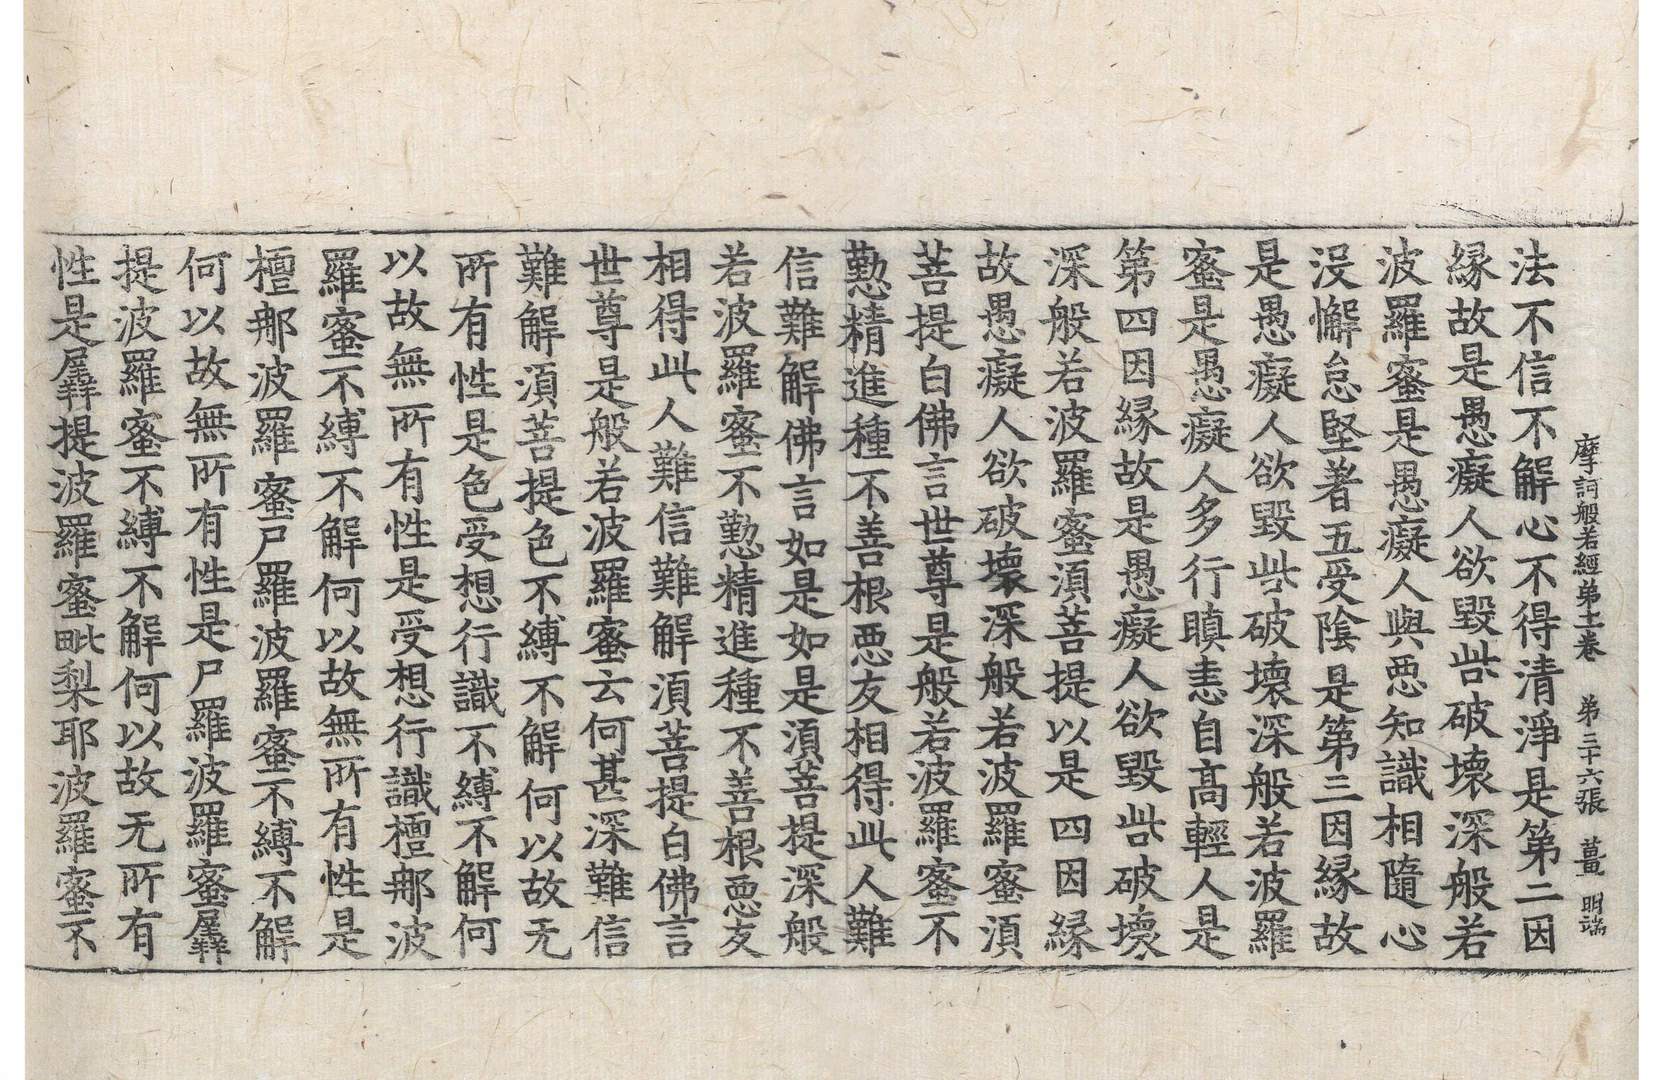 摩訶般若經第十一卷　第三十六張　薑　明端
法不信不解心不得清淨是第二因
縁故是愚癡人欲毀呰破壞深般若
波羅蜜是愚癡人與惡知識相隨心
没懈怠堅著五受陰是第三因縁故
是愚癡人欲毀呰破壞深般若波羅
蜜是愚癡人多行瞋恚自高輕人是
第四因縁故是愚癡人欲毀呰破壞
深般若波羅蜜須菩提以是四因縁
故愚癡人欲破壞深般若波羅蜜須
菩提白佛言世尊是般若波羅蜜不
懃精進種不善根惡友相得此人難
信難解佛言如是如是須菩提深般
若波羅蜜不懃精進種不善根惡友
相得此人難信難解須菩提白佛言
世尊是般若波羅蜜云何甚深難信
難解須菩提色不縛不解何以故无
所有性是色受想行識不縛不解何
以故無所有性是受想行識檀那波
羅蜜不縛不解何以故無所有性是
檀那波羅蜜尸羅波羅蜜不縛不解
何以故無所有性是尸羅波羅蜜羼
提波羅蜜不縛不解何以故无所有
性是羼提波羅蜜毗梨耶波羅蜜不